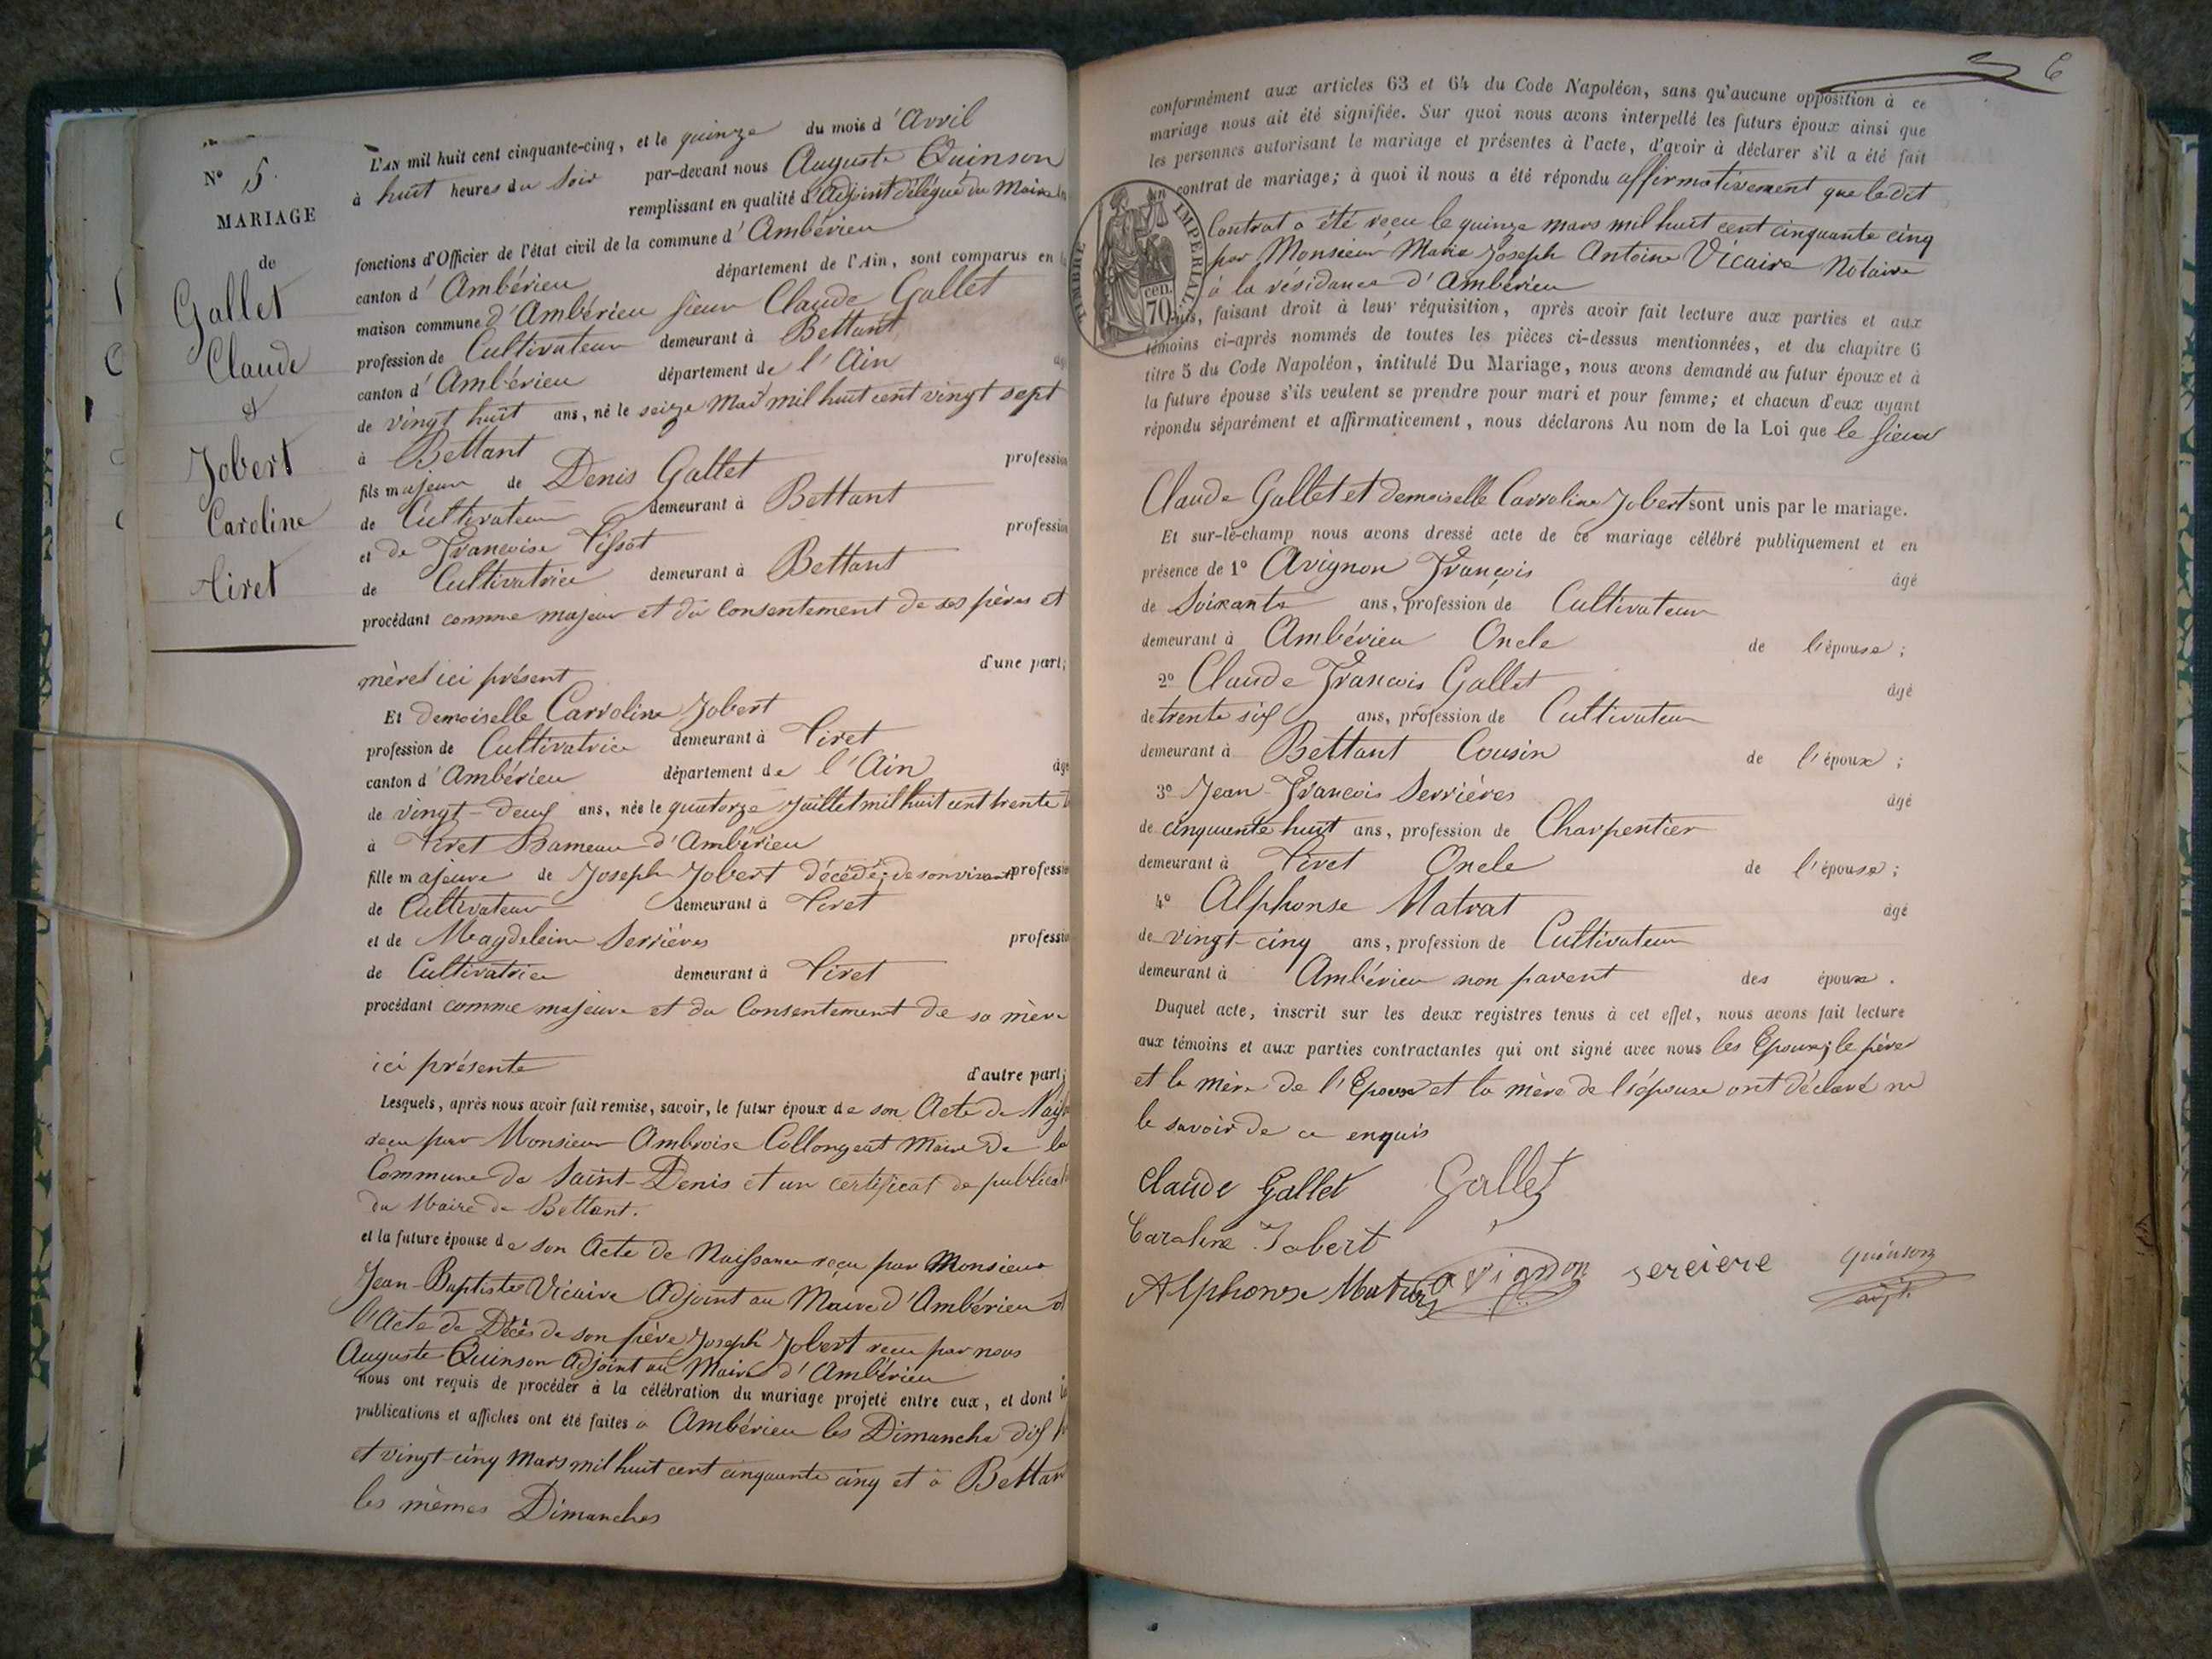 N° 5.
MARIAGE
de
Gallet
Claude
&
Jobert
Caroline
Tiret
L'AN mil huit cent cinquante-cinq, et le quinze du mois d'Avril
à huit heures du Soir par-devant nous Auguste Quinson
remplissant en qualité d'Adjoint délégué du Maire les
fonctions d'Officier de l'état civil de la commune d'Ambérieu
canton d'Ambérieu département de l'Ain, sont comparus en la
maison commune d'Ambérieu sieur Claude Gallet
profession de Cultivateur demeurant à Bettant
canton d'Ambérieu département de l'Ain âgé
de vingt huit ans, né le seize Mai mil huit cent vingt sept
à Bettant
fils majeur de Denis Gallet profession
de Cultivateur demeurant à Bettant
et de Francoise Tissot profession
de Cultivatrice demeurant à Bettant
procédant comme majeur et du Consentement de ses pères et
mères ici présent d'une part;
Et demoiselle Carroline Jobert
profession de Cultivatrice demeurant à Tiret
canton d'Ambérieu département de l'Ain âgé
de vingt-deux ans, née le quatorze Juillet mil huit cent trente
à Tiret Hameau d'Ambérieu
fille majeure de Joseph Jobert décédé; de son vivant profession
de Cultivateur demeurant à Tiret
et de Magdeleine Serrières profession
de Cultivatrice demeurant à Tiret
procédant comme majeure et du Consentement de sa mère
ici présente d'autre part;
Lesquels, après nous avoir fait remise, savoir, le futur époux de son Acte de
reçu par Monsieur Ambroise Collongeat Maire de la
Commune de Saint-Denis et un certificat de
du Maire de Bettant.
et la future épouse de son Acte de Naissance reçu par Monsieur
Jean-Baptiste Vicaire Adjoint au Maire d'Ambérieu et
l'Acte de Décès de son père Joseph Jobert reçu par nous
Auguste Quinson Adjoint au Maire d'Ambérieu
nous ont requis de procéder à la célébration du mariage projeté entre eux, et dont les
publications et affiches ont été faites à Ambérieu les Dimanche dix
et vingt-cinq Mars mil huit cent cinquante cinq et à Bettant
les mêmes Dimanches
6
conformément aux articles 63 et 64 du Code Napoléon, sans qu'aucune opposition à ce
mariage nous ait été signifiée. Sur quoi nous avons interpellé les futurs époux ainsi que
les personnes autorisant le mariage et présentes à l'acte, d'avoir à déclarer s'il a été fait
un contrat de mariage; à quoi il nous a été répondu affirmativement que le dit
Contrat a été reçu le quinze mars mil huit cent cinquante cinq
par Monsieur Marie Joseph Antoine Vicaire Notaire
à la résidance d'Ambérieu
TIMBRE IMPERIAL
70 cen.
Puis, faisant droit à leur réquisition, après avoir fait lecture aux parties et aux
témoins ci-après nommés de toutes les pièces ci-dessus mentionnées, et du chapitre 6
titre 5 du Code Napoléon, intitulé Du Mariage, nous avons demandé au futur époux et à
la future épouse s'ils veulent se prendre pour mari et pour femme; et chacun d'eux ayant
répondu séparément et affirmativement, nous déclarons Au nom de la Loi que le sieur
Claude Gallet et demoiselle Carroline Jobert sont unis par le mariage.
Et sur-le-champ nous avons dressé acte de ce mariage célébré publiquement et en
présence de 1° Avignon François âgé
de Soixante ans, profession de Cultivateur
demeurant à Ambérieu Oncle de l'épouse;
2° Claude Francois Gallet âgé
de trente six ans, profession de Cultivateur
demeurant à Bettant Cousin de l'époux;
3° Jean-Francois Serrières âgé
de cinquante huit ans, profession de Charpentier
demeurant à Tiret Oncle de l'épouse;
4° Alphonse Matrat âgé
de vingt-cinq ans, profession de Cultivateur
demeurant à Ambérieu non parent des époux.
Duquel acte, inscrit sur les deux registres tenus à cet effet, nous avons fait lecture
aux témoins et aux parties contractantes qui ont signé avec nous les Epoux; le père
et la mère de l'Epoux et la mère de l'épouse ont déclaré ne
le savoir de ce enquis
Claude Gallet Gallet
Caroline Jobert
Alphonse Matrat avignon serciere quinson
adjt.